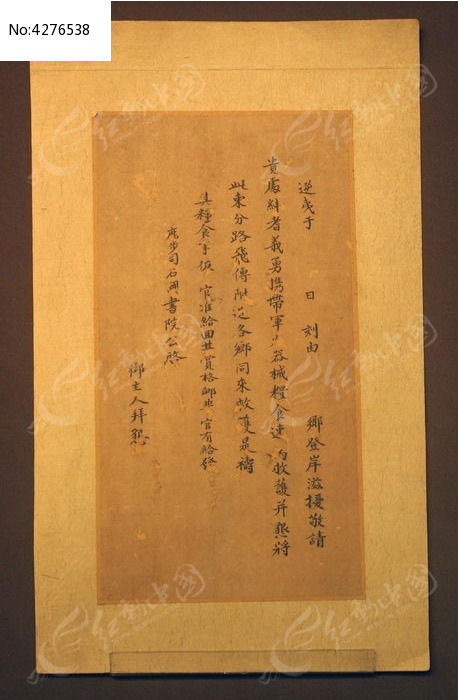 No:4276538
逆夷于 日 刻由 鄉登岸滋擾敬請
貴處紳耆義勇携帶軍 器械糧食速 救護并懇將
此柬分路飛傳附近各鄉同來救護是禱
其糧食 項 官准給回其賞格 官有給發
司石岡書院公啓
鄉主人拜懇
红动中国